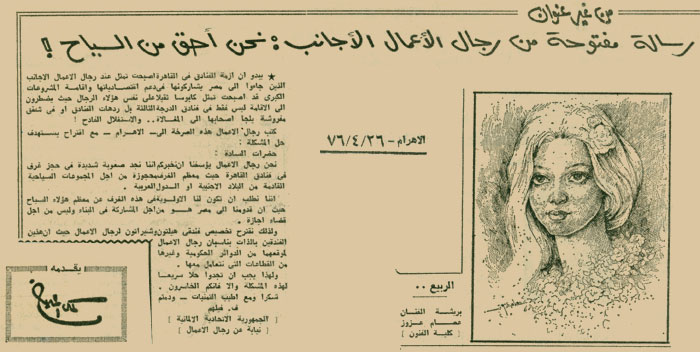 من غير عنوان
رسالة مفتوحة من رجال الأعمال الأجانب : نحن أحق من السياح !!
★ يبدو ان ازمة الفنادق فى القاهرة اصبحت تمثل عند رجال الاعمال الاجانب
الذين جاءوا الى مصر يشاركونها فى دعم اقتصادياتها واقامة المشروعات
الكبرى قد اصبحت تمثل كابوسا ثقيلا على نفس هؤلاء الرجال حيث يضطرون
الى الاقامة ليس فقط فى فنادق الدرجة الثالثة بل ردهات الفنادق او فى شقق
مفروشة يلجا اصحابها الى المغالاة .. والاستغلال الفادح !
كتب رجال الاعمال هذه الصرخة الى ــ الاهرام ــ مع اقتراح يستهدف
حل المشكلة :
حضرات السادة :
نحن رجال الاعمال يؤسفنا ان نخبركم اننا نجد صعوبة شديدة فى حجز غرف
فى فنادق القاهرة حيث معظم الغرف محجوزة من اجل المجموعات السياحية
القادمة من البلاد الاجنبية او الدول العربية .
اننا نطلب ان تكون لنا الاولوية فى هذه الغرف عن معظم هؤلاء السياح
حيث ان قدومنا الى مصر هــو من اجل المشاركة فى البناء وليس من اجل
قضاء اجازة .
ولذلك نقترح تخصيص فندقى هيلتون وشيراتون لرجال الاعمال حيث ان هذين
الفندقين بالذات يناسبان رجال الاعمال
لموقعهما من الدوائر الحكومية وغيرها
من القطاعات التى نتعامل معها .
ولهذا يجب ان تجدوا حلا سريعا
لهذه المشكلة والا فانكم الخاسرون .
شكرا ومع اطيب التمنيات ــ ودمتم
ف . فيلهم
[ الجمهورية الاتحادية الالمانية ]
[ نيابة عن رجال الاعمال ]
يقدمه
الاهرام ــ ٧٦/٤/٢٦
الربيع ..
بريشة الفنان
عصام عزوز
[ كلية الفنون ]